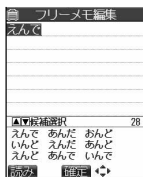 フリーメモ編集
えんで
▲▼候補選択 28
えんで あんだ おんと
いんと えんだ あんど
えんと あんで いんで
読み 確定